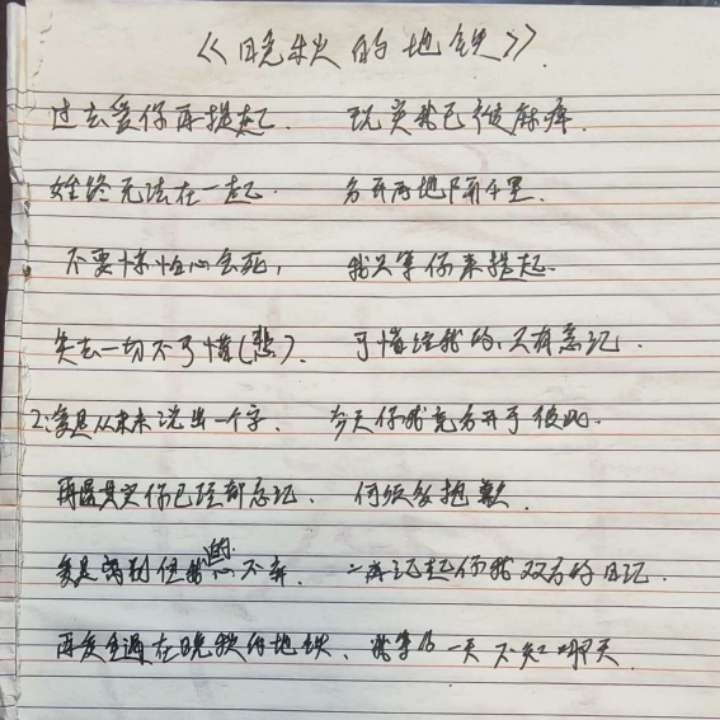 《晚秋的地铁》.
过去爱你再提起. 现实我已经麻痹.
始终无法在一起. 分开两地隔千里.
不要惊怕心会死, 我只等你来提起.
失去一切不可惜(悲). 可惜给我的, 只有忘记.
2:爱是从未来说出一个字. 今天你我竟分开了彼此.
再遇其实你已经都忘记. 何须多抱歉.
爱是离别但我的心不弃. 一再记起你我双方的日记.
再度重遇在晚秋的地铁、我等的一天不知哪天.